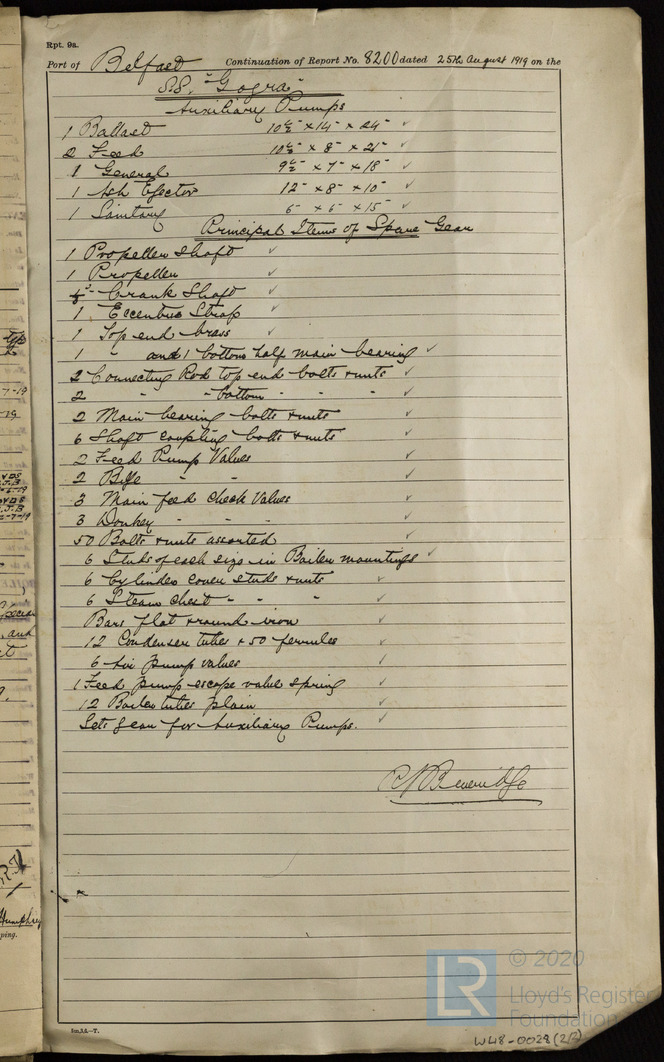 Rpt. 9a.
Port of Belfast Continuation of Report No. 8200 dated 25th August 1919 on the
S.S. "Gogra"
Auxiliary Pumps
1 Ballast 10½" × 14" × 24" ✓
2 Feed 10½" × 8" × 21" ✓
1 General 9½" × 7" × 18" ✓
1 Ash Ejector 12" × 8" × 10" ✓
1 Sanitary 6" × 6" × 15" ✓
Principal Items of Spare Gear
1 Propeller Shaft ✓
1 Propeller ✓
Crank Shaft ✓
1 Eccentric Strap ✓
1 Top end brass ✓
1 " and 1 bottom half main bearing ✓
2 Connecting Rod top end bolts & nuts ✓
2 " " bottom " " " ✓
2 Main bearing bolts & nuts ✓
6 Shaft coupling bolts & nuts ✓
2 Feed Pump Valves ✓
2 Bilge " " ✓
3 Main feed check Valves ✓
3 Donkey " " " ✓
50 Bolts & nuts assorted ✓
6 Studs of each size in Boiler mountings ✓
6 Cylinder cover studs & nuts ✓
6 Steam chest " " " ✓
Bars flat & round iron ✓
12 Condenser tubes & 50 ferrules ✓
6 Air pump valves ✓
1 Feed pump escape valve spring ✓
12 Boiler tubes plain ✓
Sets gear for Auxiliary Pumps. ✓
Beveridge
5m,3,L.—T.
LR
© 2020
Lloyd's Register
Foundation
W48-0028(2/2)